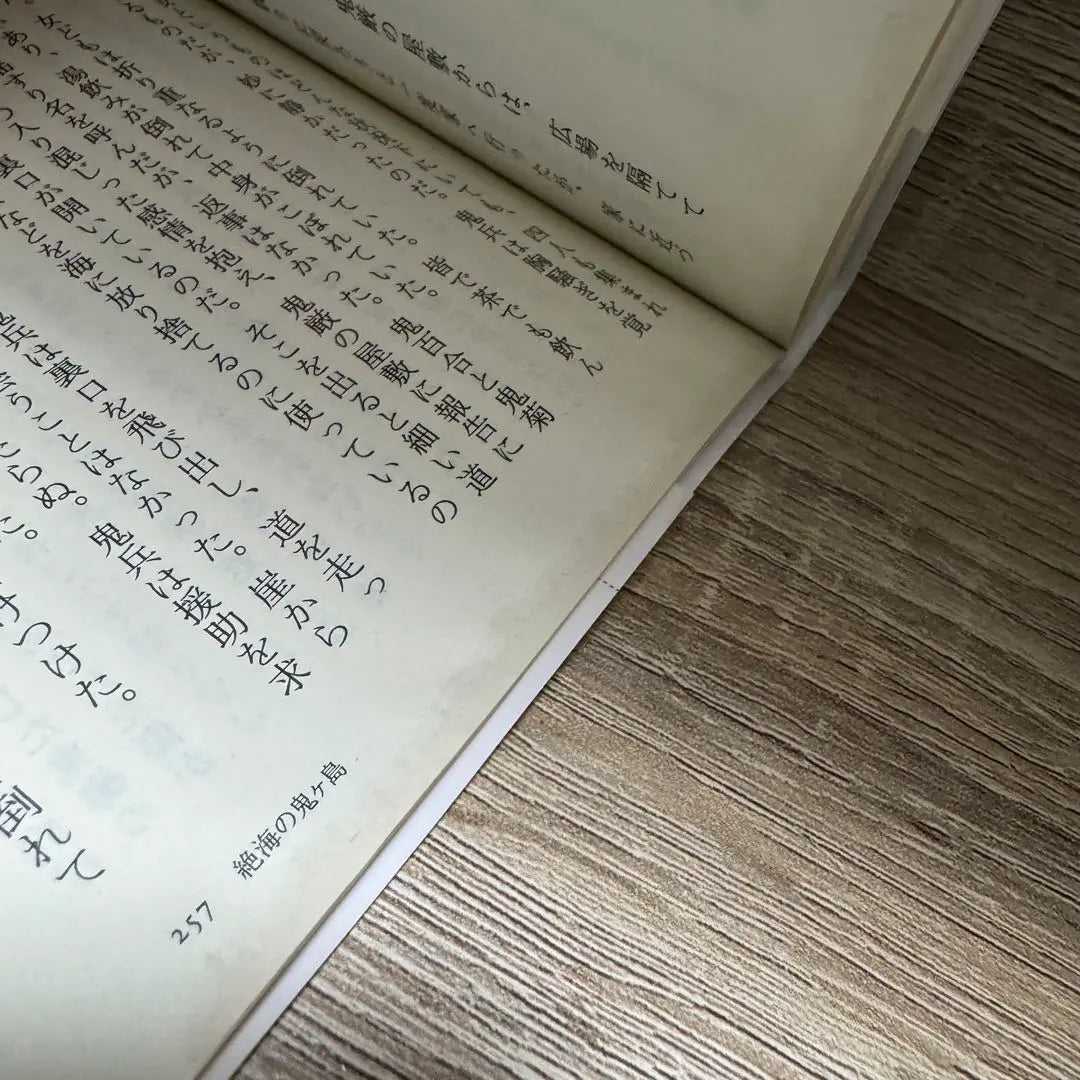 の屋敷からは、広場を隔てて
いても、四人も集まれ
るものだが、妙に静かだったのだ。鬼兵は胸騒ぎを覚
女どもは折り重なるように倒れていた。皆で茶でも飲ん
あり、湯飲みが倒れて中身がこぼれていた。
すり名を呼んだが、返事はなかった。鬼百合と鬼菊
つ入り混じった感情を抱え、鬼厳の屋敷に報告に
裏口が開いているのだ。そこを出ると細い道
などを海に放り捨てるのに使っているの
兵は裏口を飛び出し、道を走っ
うことはなかった。崖から
らぬ。鬼兵は援助を求
に。
けつけた。
倒れて
絶海の鬼ヶ島
257